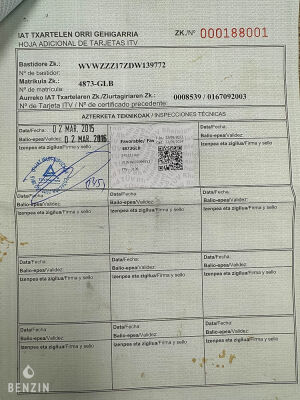 IAT TXARTELEN ORRI GEHIGARRIA
HOJA ADICIONAL DE TARJETAS ITV
ZK./Nº 000188001
Bastidore Zk.:
Nº de bastidor:
WVWZZZ17ZDW139772
Matrikula Zk.:
Nº de matrícula:
4873-GLB
Aurreko IAT Txartelaren Zk./Ziurtagiriaren Zk.:
Nº de Tarjeta ITV / Nº de certificado precedente:
0008539 / 0167092003
AZTERKETA TEKNIKOAK / INSPECCIONES TÉCNICAS
Data/Fecha: 02 MAR. 2015
Balio-epea/Validez: 02 MAR. 2016
Izenpea eta zigilua/Firma y sello
Favorable/
Data/Fecha:
Balio-epea/Validez:
Izenpea eta zigilua/Firma y sello
Data/Fecha:
Balio-epea/Validez:
Izenpea eta zigilua/Firma y sello
Data/Fecha:
Balio-epea/Validez:
Izenpea eta zigilua/Firma y sello
Data/Fecha:
Balio-epea/Validez:
Izenpea eta zigilua/Firma y sello
Data/Fecha:
Balio-epea/Validez:
Izenpea eta zigilua/Firma y sello
Data/Fecha:
Balio-epea/Validez:
Izenpea eta zigilua/Firma y sello
Data/Fecha:
Balio-epea/Validez:
Izenpea eta zigilua/Firma y sello
Data/Fecha:
Balio-epea/Validez:
Izenpea eta zigilua/Firma y sello
Data/Fecha:
Balio-epea/Validez:
Izenpea eta zigilua/Firma y sello
Data/Fecha:
Balio-epea/Validez:
Izenpea eta zigilua/Firma y sello
BENZIN